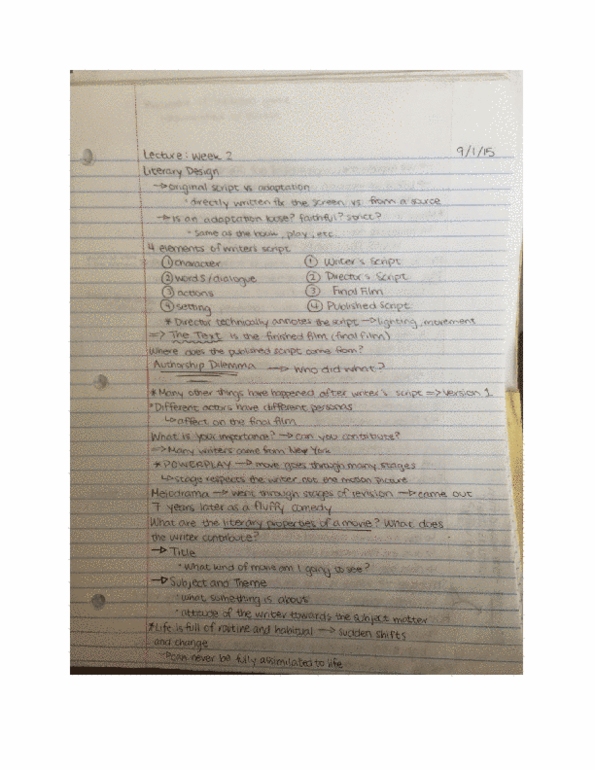 Lecture: Week 2 9/1/15
Literary Design
→ original script vs adaptation
· directly written for the screen vs. from a source
→ is an adaptation loose? faithful? strict?
· same as the book, play, etc.
4 elements of writer's script
① character ① Writer's Script
② words/dialogue ② Director's Script
③ actions ③ Final Film
④ setting ④ Published Script
* Director technically annotes the script → lighting, movement
=> The Text is the finished film (final film)
Where does the published script come from?
Authorship Dilemma → Who did what?
* Many other things have happened after writer's script => Version 1.
* Different actors have different personas
↳ affect on the final film
What is your importance? → can you contribute?
=> Many writers came from New York
* POWERPLAY → move goes through many stages
↳ stage respects the writer not the motion picture
Melodrama → went through stages of revision → came out
7 years later as a fluffy comedy
What are the literary properties of a movie? What does
the writer contribute?
→ Title
· What kind of movie am I going to see?
→ Subject and Theme
· what something is about
· attitude of the writer towards the subject matter
* Life is full of routine and habitual → sudden shifts
and change
→ can never be fully assimilated to life